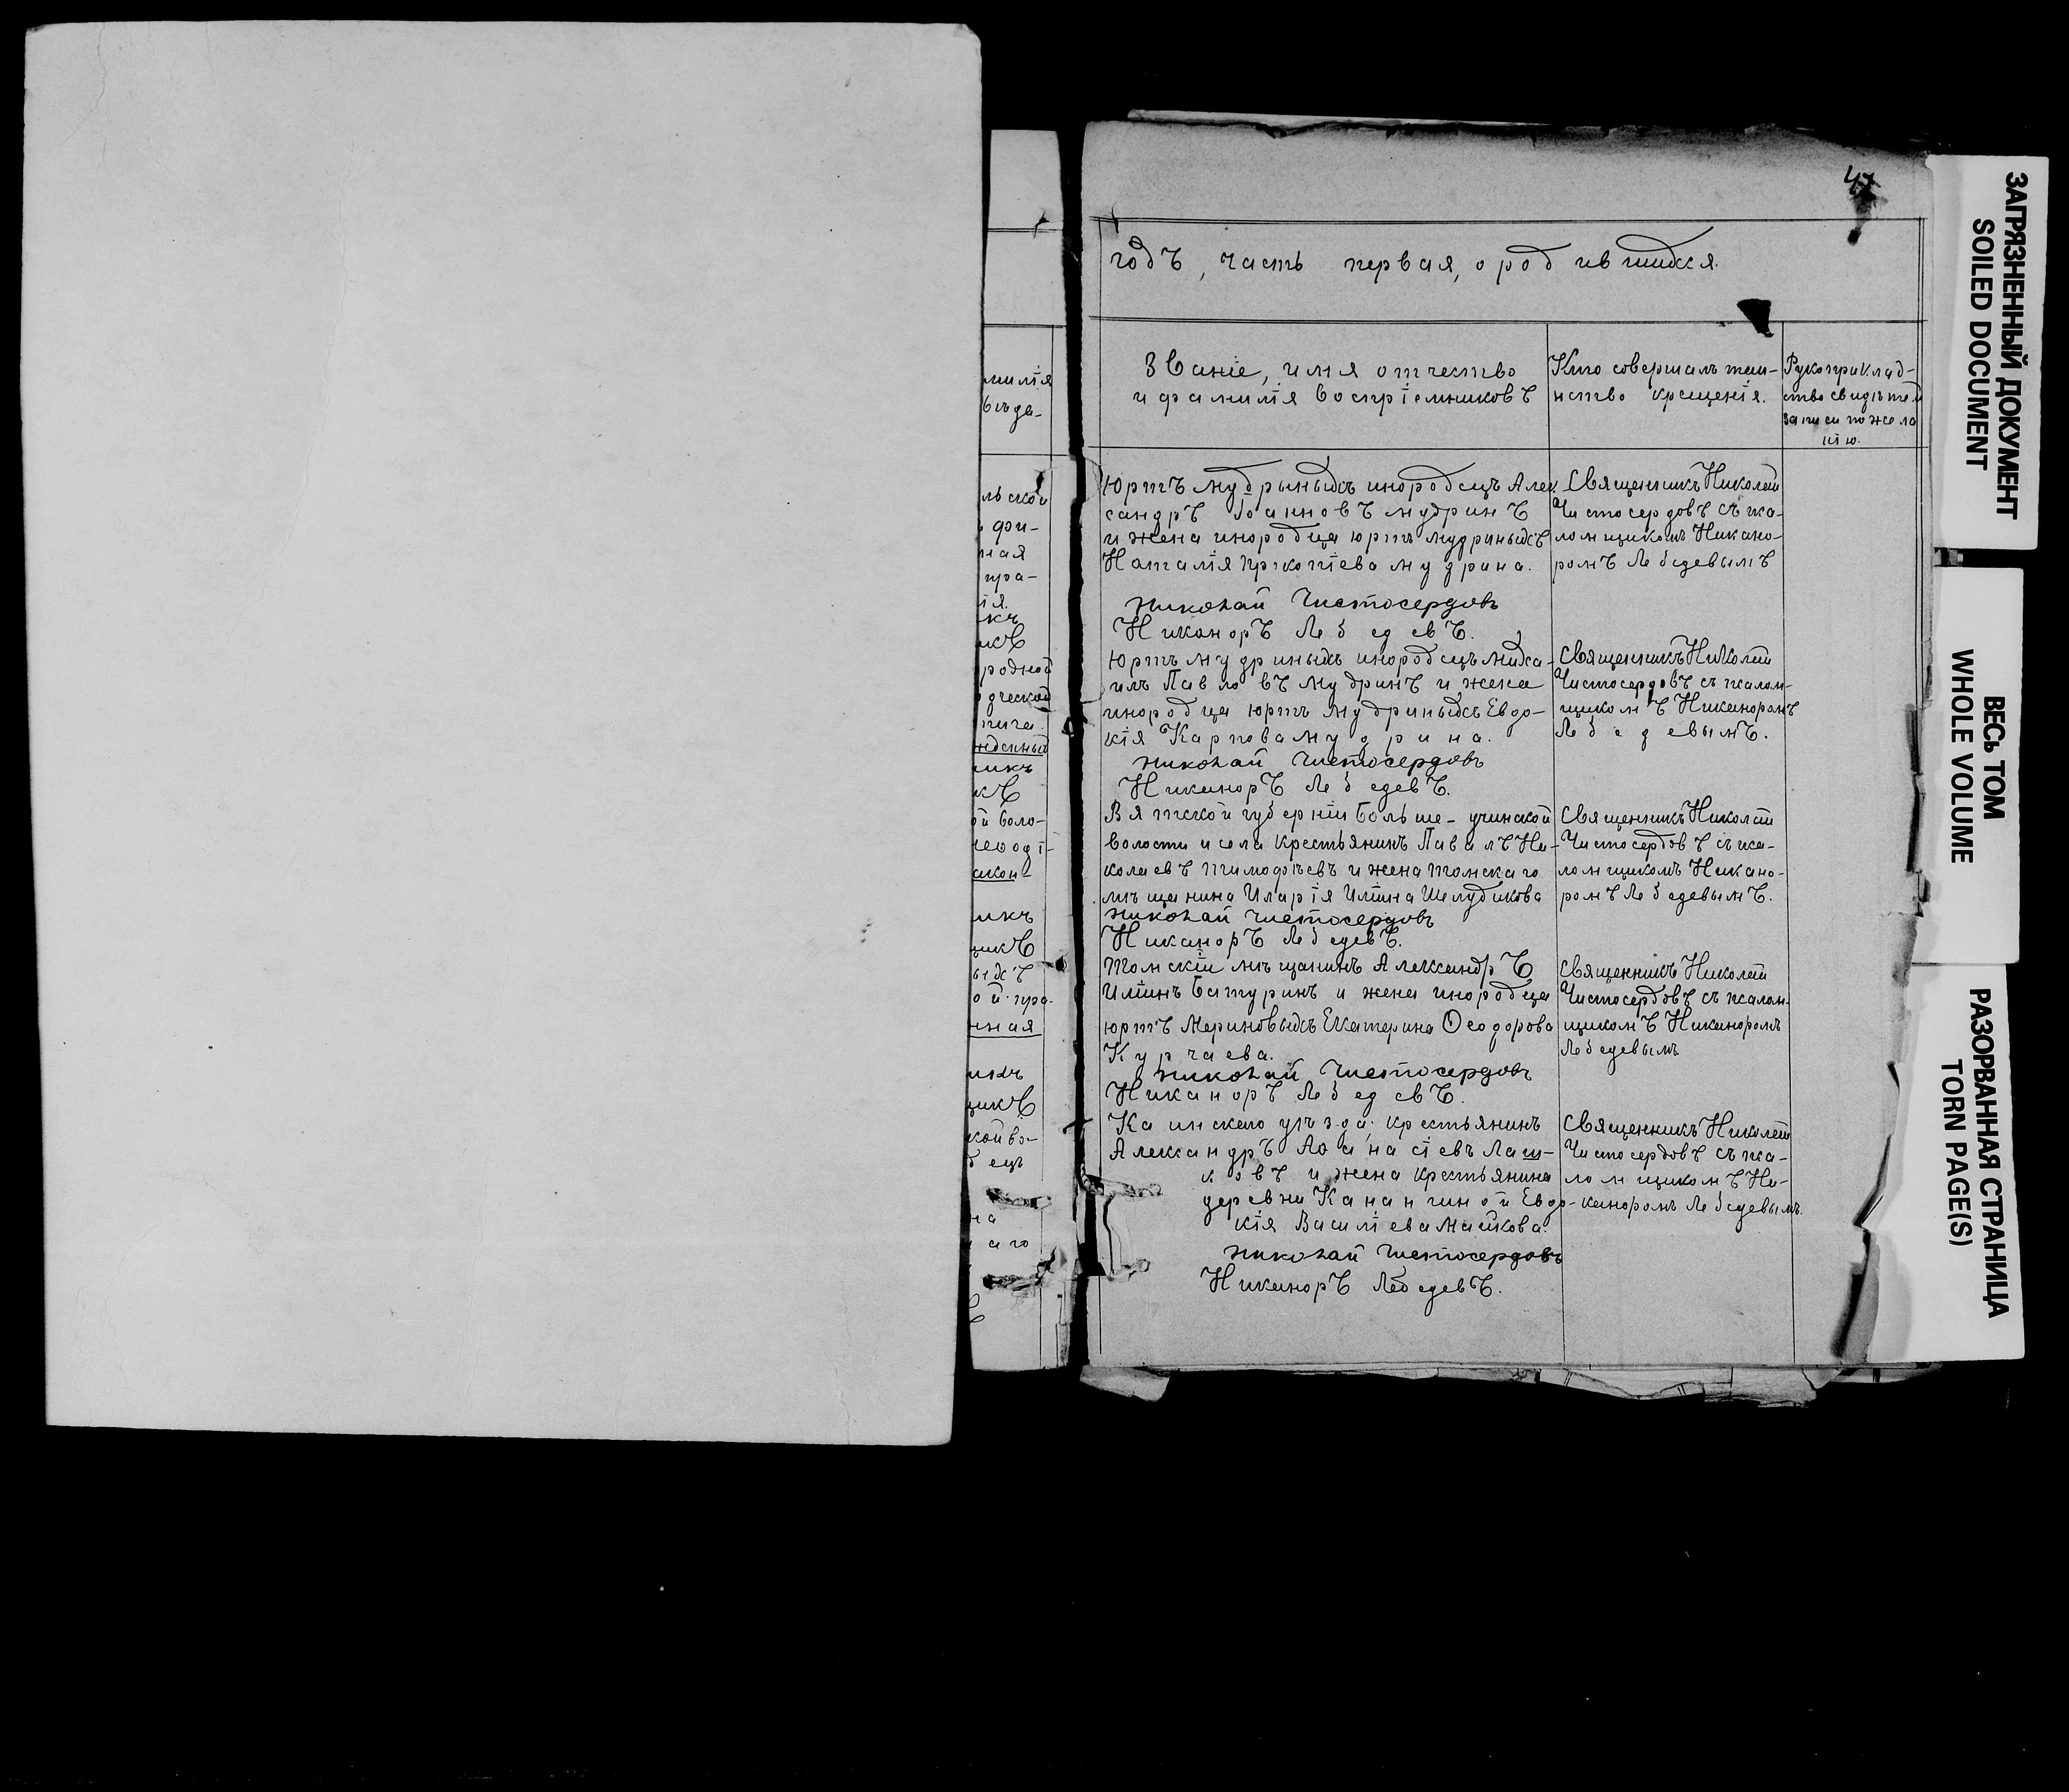 47
годъ, часть первая, о родившихся.
Званіе, имя отчество
и фамилія воспріемниковъ
Кто совершалъ таи-
нство крещенія.
Рукоприклад-
ство свидѣтел.
записи по жела
нію.
милія
вѣда-
льской
фи-
ная
пра-
ія.
икъ
икъ
родной
дческой
жденный
икъ
къ
ой воло-
акон-
икъ
щикъ
ыхъ
ой пра-
нная
икъ
щикъ
кой во-
ецъ
на
аго
Юртъ Мудрыныхъ инородецъ Алек-
сандръ Іоанновъ Мудринъ
и жена инородца юртъ Мудриныхъ
Наталія Пркопіева Мудрина.
Николай Чистосердовъ
Никаноръ Лебедевъ.
Священникъ Николай
Чистосердовъ съ пса-
ломщикомъ Никано-
ромъ Лебедевымъ
Юртъ Мудриныхъ инородецъ Миха-
илъ Павловъ Мудринъ и жена
инородца юртъ Мудриныхъ Евдо-
кія Карпова Мудрина.
Николай Чистосердовъ
Никаноръ Лебедевъ.
Священникъ Николай
Чистосердовъ съ псалом-
щикомъ Никаноромъ
Лебедевымъ.
Вятской губерніи Больше-учинской
волости и села крестьянинъ Павелъ Ни-
колаевъ Тимофѣевъ и жена Томскаго
мѣщанина Иларія Иліина Шелудикова
Николай Чистосердовъ
Никаноръ Лебедевъ.
Священникъ Николай
Чистосердовъ съ пса-
ломщикомъ Никано-
ромъ Лебедевымъ.
Томскій мѣщанинъ Александръ
Иліинъ Батуринъ и жена инородца
юртъ Мериновыхъ Екатерина Ѳеодорова
Курчаева.
Николай Чистосердовъ
Никаноръ Лебедевъ.
Священникъ Николай
Чистосердовъ съ псалом-
щикомъ Никаноромъ
Лебедевымъ
Каинскаго уѣзда: крестьянинъ
Александръ Аѳанасіевъ Лаш-
ковъ и жена крестьянина
деревни Канангиной Евдо-
кія Василіева Машкова.
Николай Чистосердовъ
Никаноръ Лебедевъ.
Священникъ Николай
Чистосердовъ съ пса-
ломщикомъ Ни-
каноромъ Лебедевымъ.
ЗАГРЯЗНЕННЫЙ ДОКУМЕНТ
SOILED DOCUMENT
ВЕСЬ ТОМ
WHOLE VOLUME
РАЗОРВАННАЯ СТРАНИЦА
TORN PAGE(S)